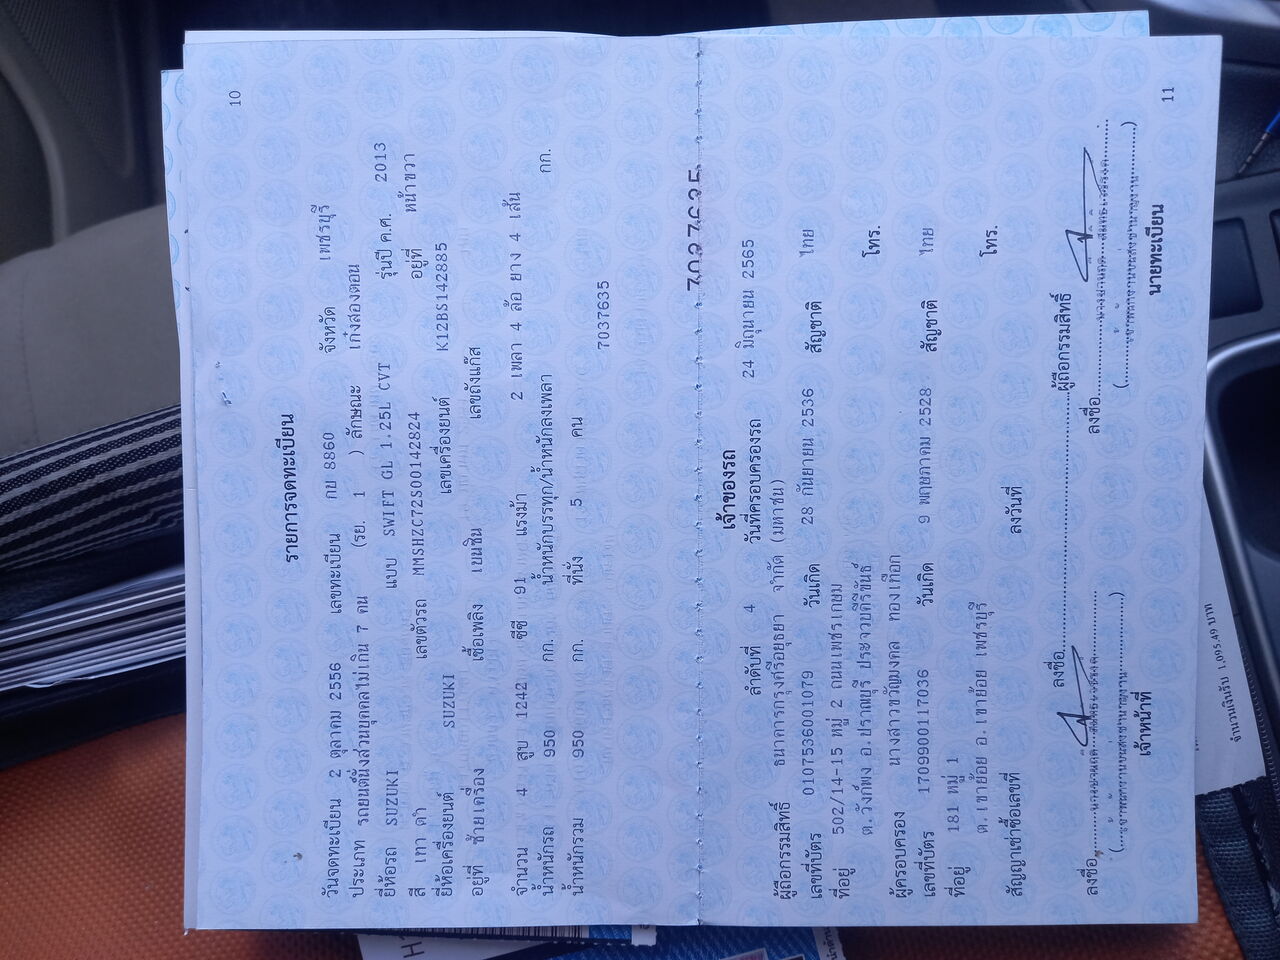 10
รายการจดทะเบียน
วันจดทะเบียน 2 ตุลาคม 2556 เลขทะเบียน กบ 8860 จังหวัด เพชรบุรี
ประเภท รถยนต์นั่งส่วนบุคคลไม่เกิน 7 คน (รย. 1 ) ลักษณะ เก๋งสองตอน
ยี่ห้อรถ SUZUKI แบบ SWIFT GL 1.25L CVT รุ่นปี ค.ศ. 2013
สี เทา ดำ เลขตัวรถ MMSHZC72S00142824 อยู่ที่ หน้าขวา
ยี่ห้อเครื่องยนต์ SUZUKI เลขเครื่องยนต์ K12BS142885
อยู่ที่ ซ้ายเครื่อง เชื้อเพลิง เบนซิน เลขถังแก๊ส
จำนวน 4 สูบ 1242 ซีซี 91 แรงม้า 2 เพลา 4 ล้อ ยาง 4 เส้น
น้ำหนักรถ 950 กก. น้ำหนักบรรทุก/น้ำหนักลงเพลา กก.
น้ำหนักรวม 950 กก. ที่นั่ง 5 คน
7037635
7037635
เจ้าของรถ
ลำดับที่ 4 วันที่ครอบครองรถ 24 มิถุนายน 2565
ผู้ถือกรรมสิทธิ์ ธนาคารกรุงศรีอยุธยา จำกัด (มหาชน)
เลขที่บัตร 0107536001079 วันเกิด 28 กันยายน 2536 สัญชาติ ไทย
ที่อยู่ 502/14-15 หมู่ 2 ถนนเพชรเกษม
ต.วังก์พง อ.ปราณบุรี ประจวบคีรีขันธ์ โทร.
ผู้ครอบครอง นางสาวขวัญมงคล ทองเทือก
เลขที่บัตร 1709900117036 วันเกิด 9 พฤษภาคม 2528 สัญชาติ ไทย
ที่อยู่ 181 หมู่ 1
ต.เขาย้อย อ.เขาย้อย เพชรบุรี โทร.
สัญญาเช่าซื้อเลขที่ ลงวันที่
ลงชื่อ ผู้ถือกรรมสิทธิ์
ลงชื่อ ลงชื่อ
เจ้าหน้าที่ นายทะเบียน
11
จำนวนเงินรับ 1,095.49 บาท